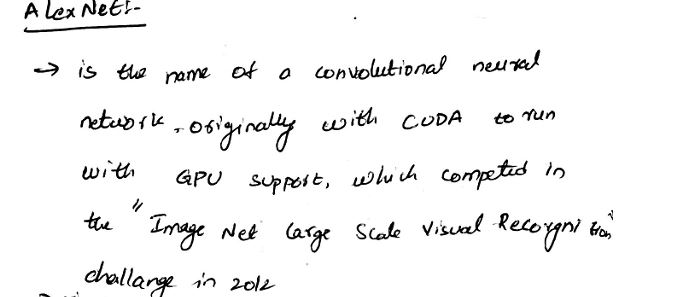 AlexNet:-
→ is the name of a convolutional neural
network, originally with CUDA to run
with GPU support, which competed in
the "Image Net Large Scale Visual Recorgnition"
challange in 2012